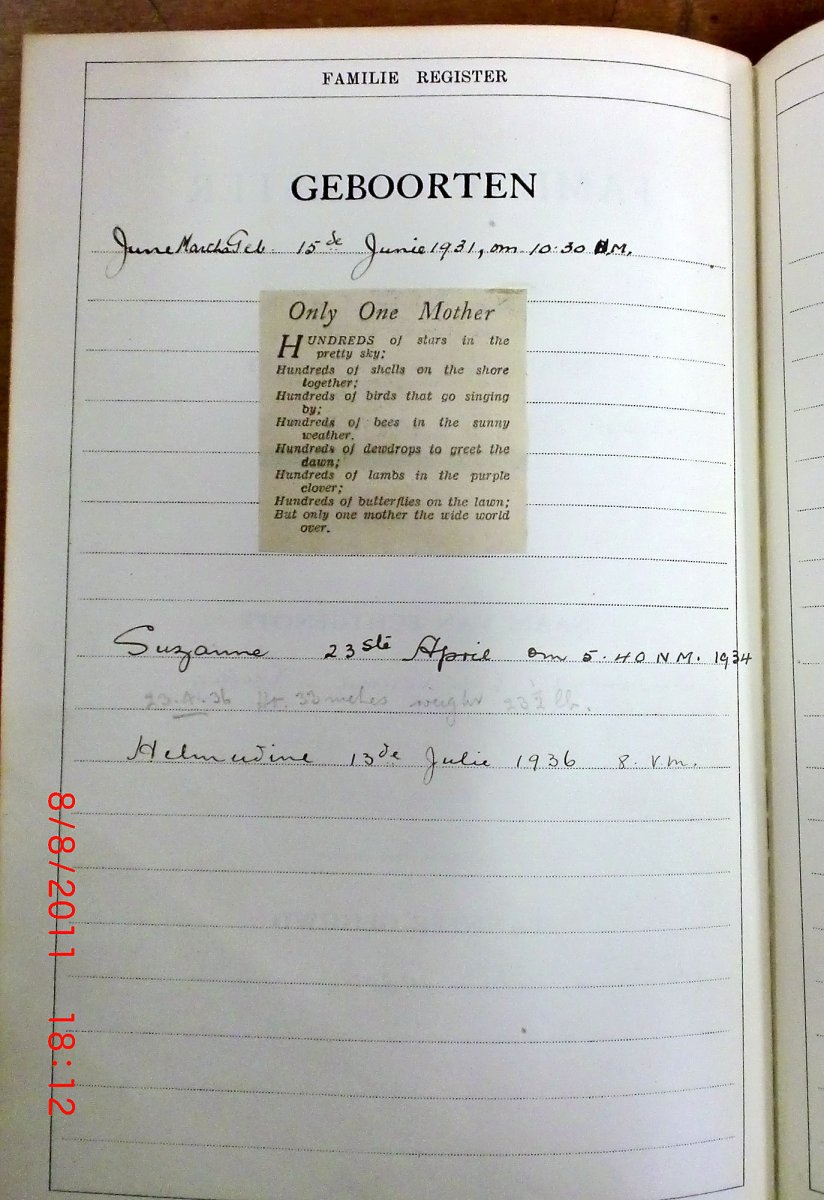 FAMILIE REGISTER
GEBOORTEN
June Martha Geb. 15de Junie 1931, om 10.30 .M.
Only One Mother
HUNDREDS of stars in the
pretty sky;
Hundreds of shells on the shore
together;
Hundreds of birds that go singing
by;
Hundreds of bees in the sunny
weather.
Hundreds of dewdrops to greet the
dawn;
Hundreds of lambs in the purple
clover;
Hundreds of butterflies on the lawn;
But only one mother the wide world
over.
Suzanne 23ste April om 5.40 N M. 1934
23.4.36 Ht. 33 inches weight 23½ lb.
Helmudine 13de Julie 1936 8. v.m.
8/8/2011 18:12